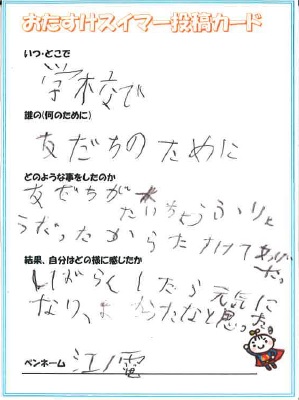 おたすけスイマー投稿カード
いつ・どこで
学校で
誰の(何のために)
友だちのために
どのような事をしたのか
友だちが
たいちょうふりょ
うだったからたすけてあげ
だ。
結果、自分はどの様に感じたか
しばらくしたら元気に
なり、よかったなと思った。
ペンネーム 江ノ電